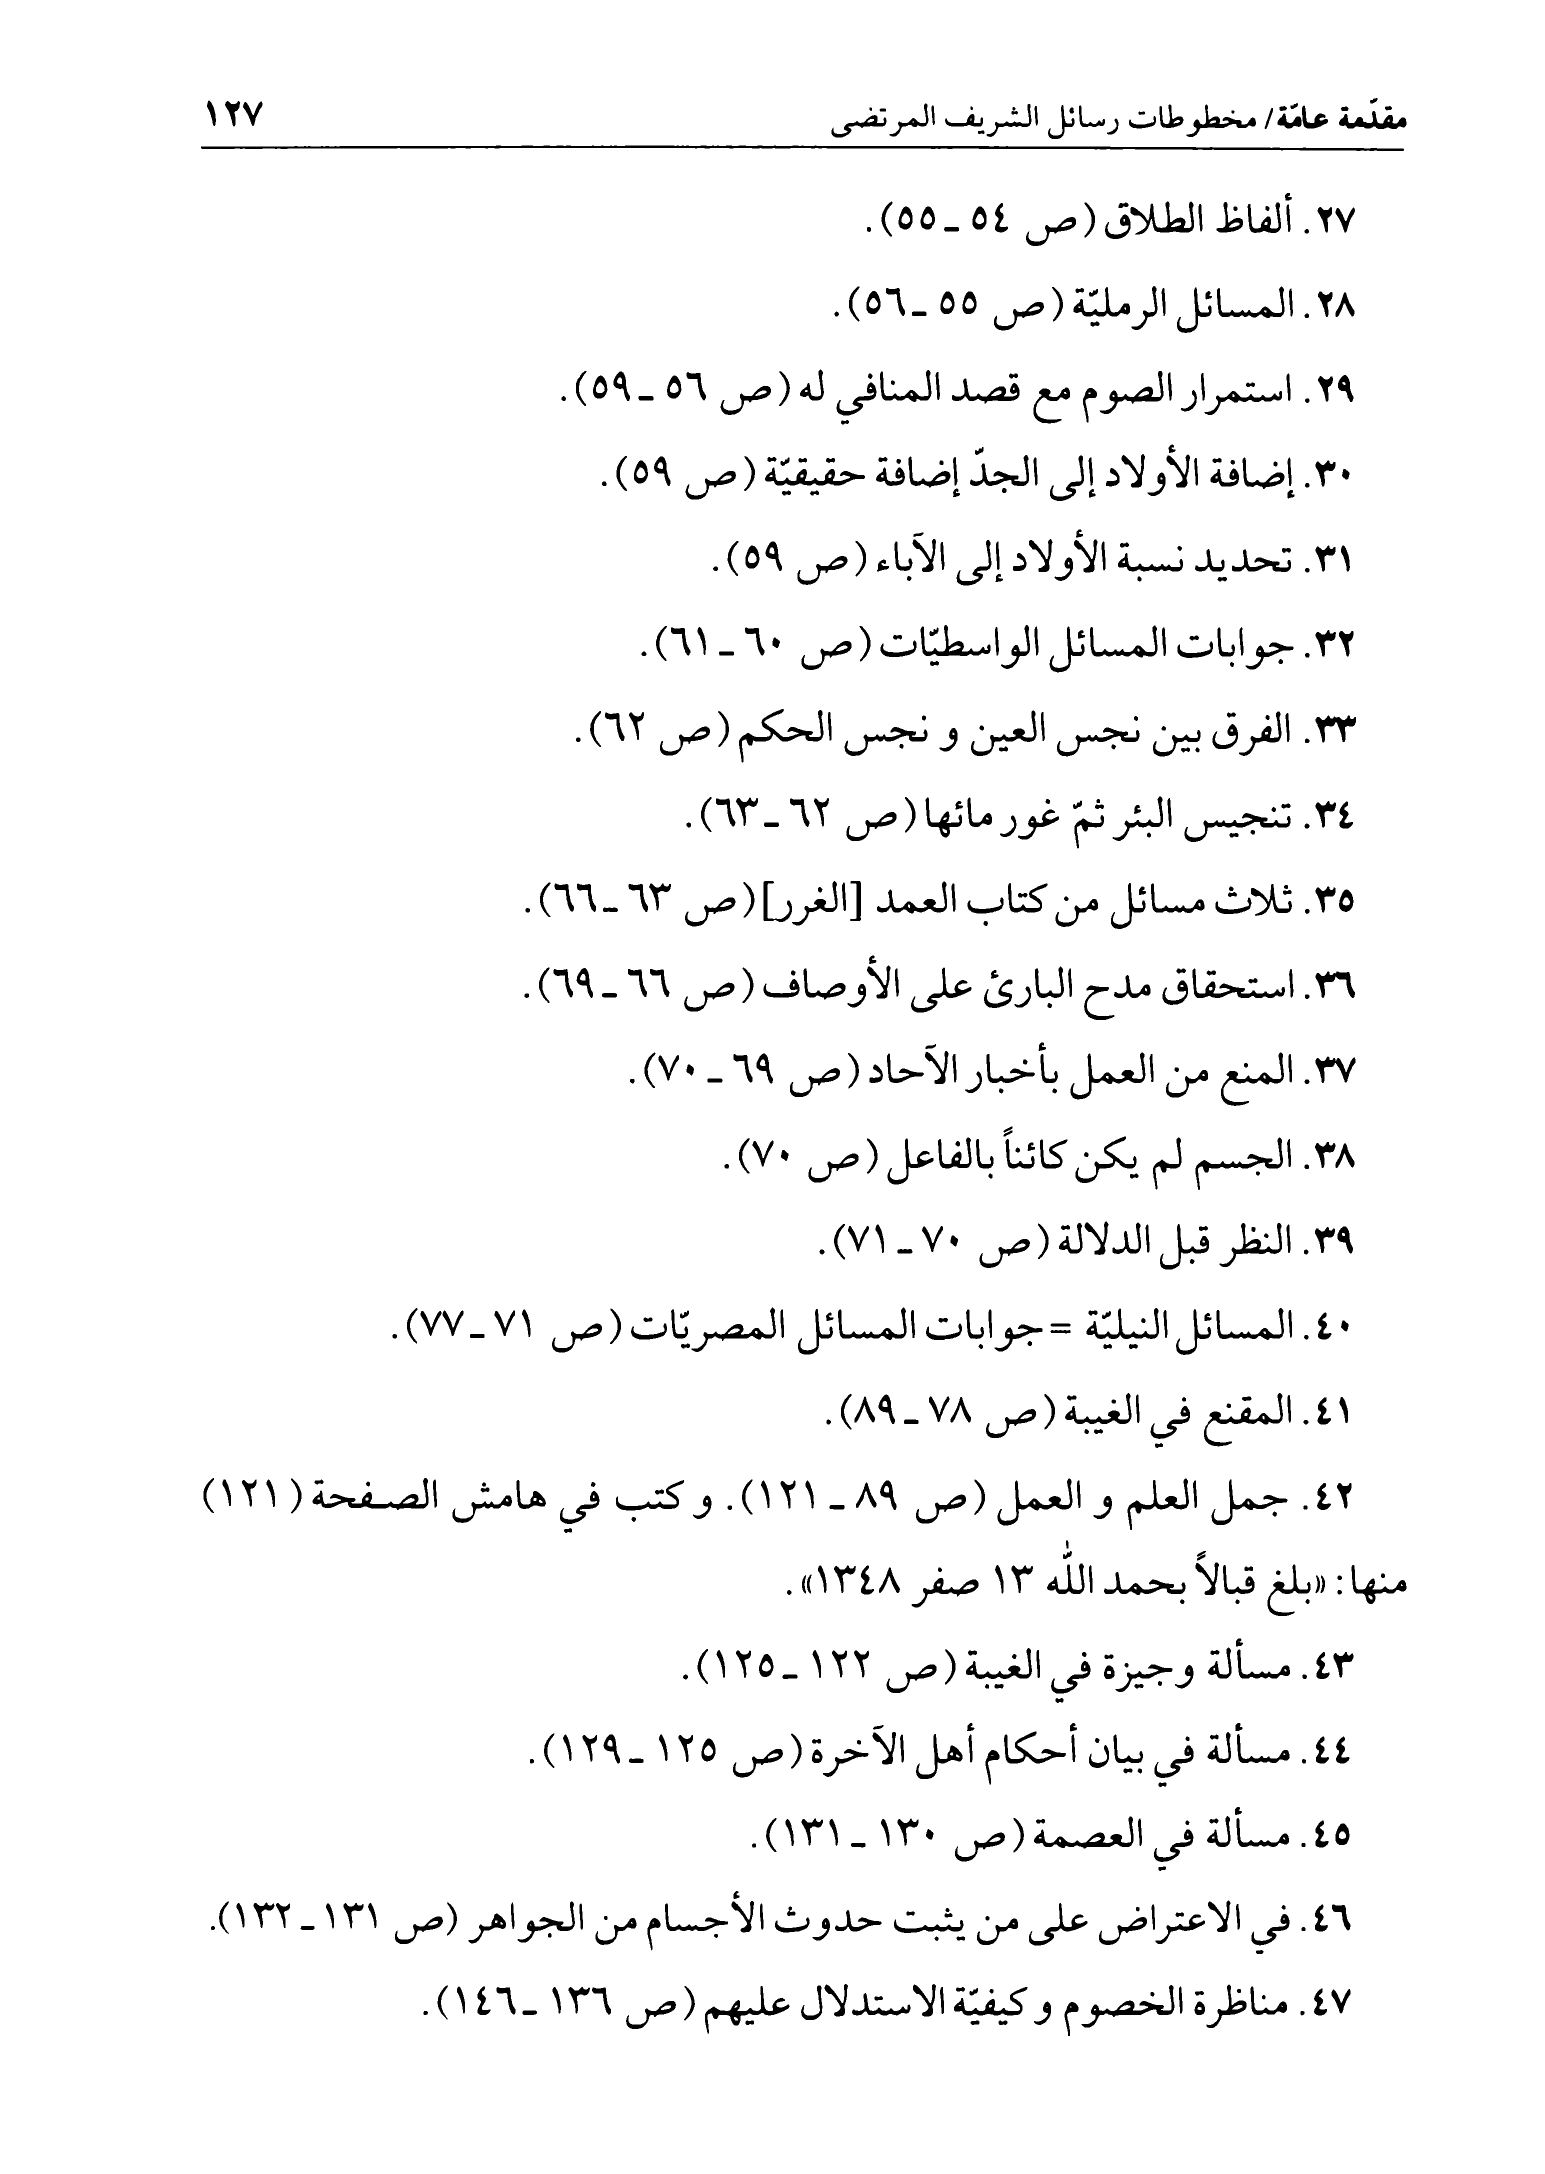 مقدّمة عامّة/ مخطوطات رسائل الشريف المرتضى ١٢٧
٢٧. ألفاظ الطلاق (ص ٥٤ ـ ٥٥).
٢٨. المسائل الرمليّة (ص ٥٥ ـ ٥٦).
٢٩. استمرار الصوم مع قصد المنافي له (ص ٥٦ ـ ٥٩).
٣٠. إضافة الأولاد إلى الجدّ إضافة حقيقيّة (ص ٥٩).
٣١. تحديد نسبة الأولاد إلى الآباء (ص ٥٩).
٣٢. جوابات المسائل الواسطيّات (ص ٦٠ ـ ٦١).
٣٣. الفرق بين نجس العين و نجس الحكم (ص ٦٢).
٣٤. تنجيس البئر ثمّ غور مائها (ص ٦٢ ـ ٦٣).
٣٥. ثلاث مسائل من كتاب العمد [الغرر] (ص ٦٣ ـ ٦٦).
٣٦. استحقاق مدح البارئ على الأوصاف (ص ٦٦ ـ ٦٩).
٣٧. المنع من العمل بأخبار الآحاد (ص ٦٩ ـ ٧٠).
٣٨. الجسم لم يكن كائناً بالفاعل (ص ٧٠).
٣٩. النظر قبل الدلالة (ص ٧٠ ـ ٧١).
٤٠. المسائل النيليّة = جوابات المسائل المصريّات (ص ٧١ ـ ٧٧).
٤١. المقنع في الغيبة (ص ٧٨ ـ ٨٩).
٤٢. جمل العلم و العمل (ص ٨٩ ـ ١٢١). و كتب في هامش الصفحة (١٢١)
منها: «بلغ قبالاً بحمد اللّٰه ١٣ صفر ١٣٤٨».
٤٣. مسألة وجيزة في الغيبة (ص ١٢٢ ـ ١٢٥).
٤٤. مسألة في بيان أحكام أهل الآخرة (ص ١٢٥ ـ ١٢٩).
٤٥. مسألة في العصمة (ص ١٣٠ ـ ١٣١).
٤٦. في الاعتراض على من يثبت حدوث الأجسام من الجواهر (ص ١٣١ ـ ١٣٢).
٤٧. مناظرة الخصوم و كيفيّة الاستدلال عليهم (ص ١٣٦ ـ ١٤٦).